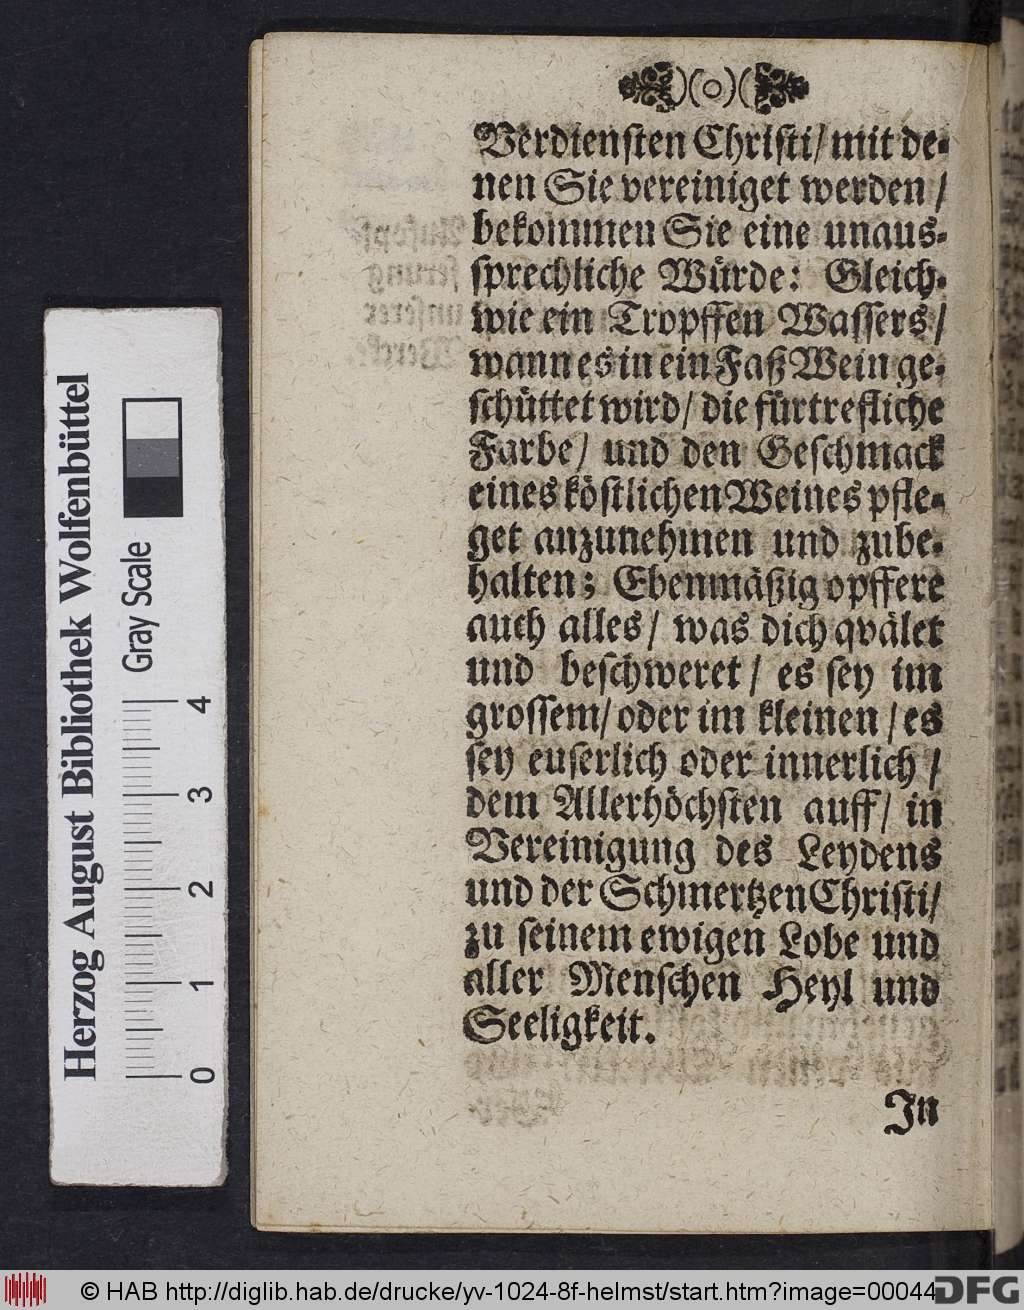 Verdienſten Chriſti/ mit de-
nen Sie vereiniget werden/
bekommen Sie eine unaus-
ſprechliche Würde: Gleich-
wie ein Tropffen Waſſers/
wann es in ein Faß Wein ge-
ſchüttet wird/ die fürtrefliche
Farbe/ und den Geſchmack
eines köſtlichen Weines pfle-
get anzunehmen und zube-
halten; Ebenmäßig opffere
auch alles/ was dich qvälet
und beſchweret/ es ſey im
groſſem/ oder im kleinen/ es
ſey euſerlich oder innerlich/
dem Allerhöchſten auff/ in
Vereinigung des Leydens
und der Schmertzen Chriſti/
zu ſeinem ewigen Lobe und
aller Menſchen Heyl und
Seeligkeit.
In
Herzog August Bibliothek Wolfenbüttel
Gray Scale
0 1 2 3 4
© HAB http://diglib.hab.de/drucke/yv-1024-8f-helmst/start.htm?image=00044
DFG